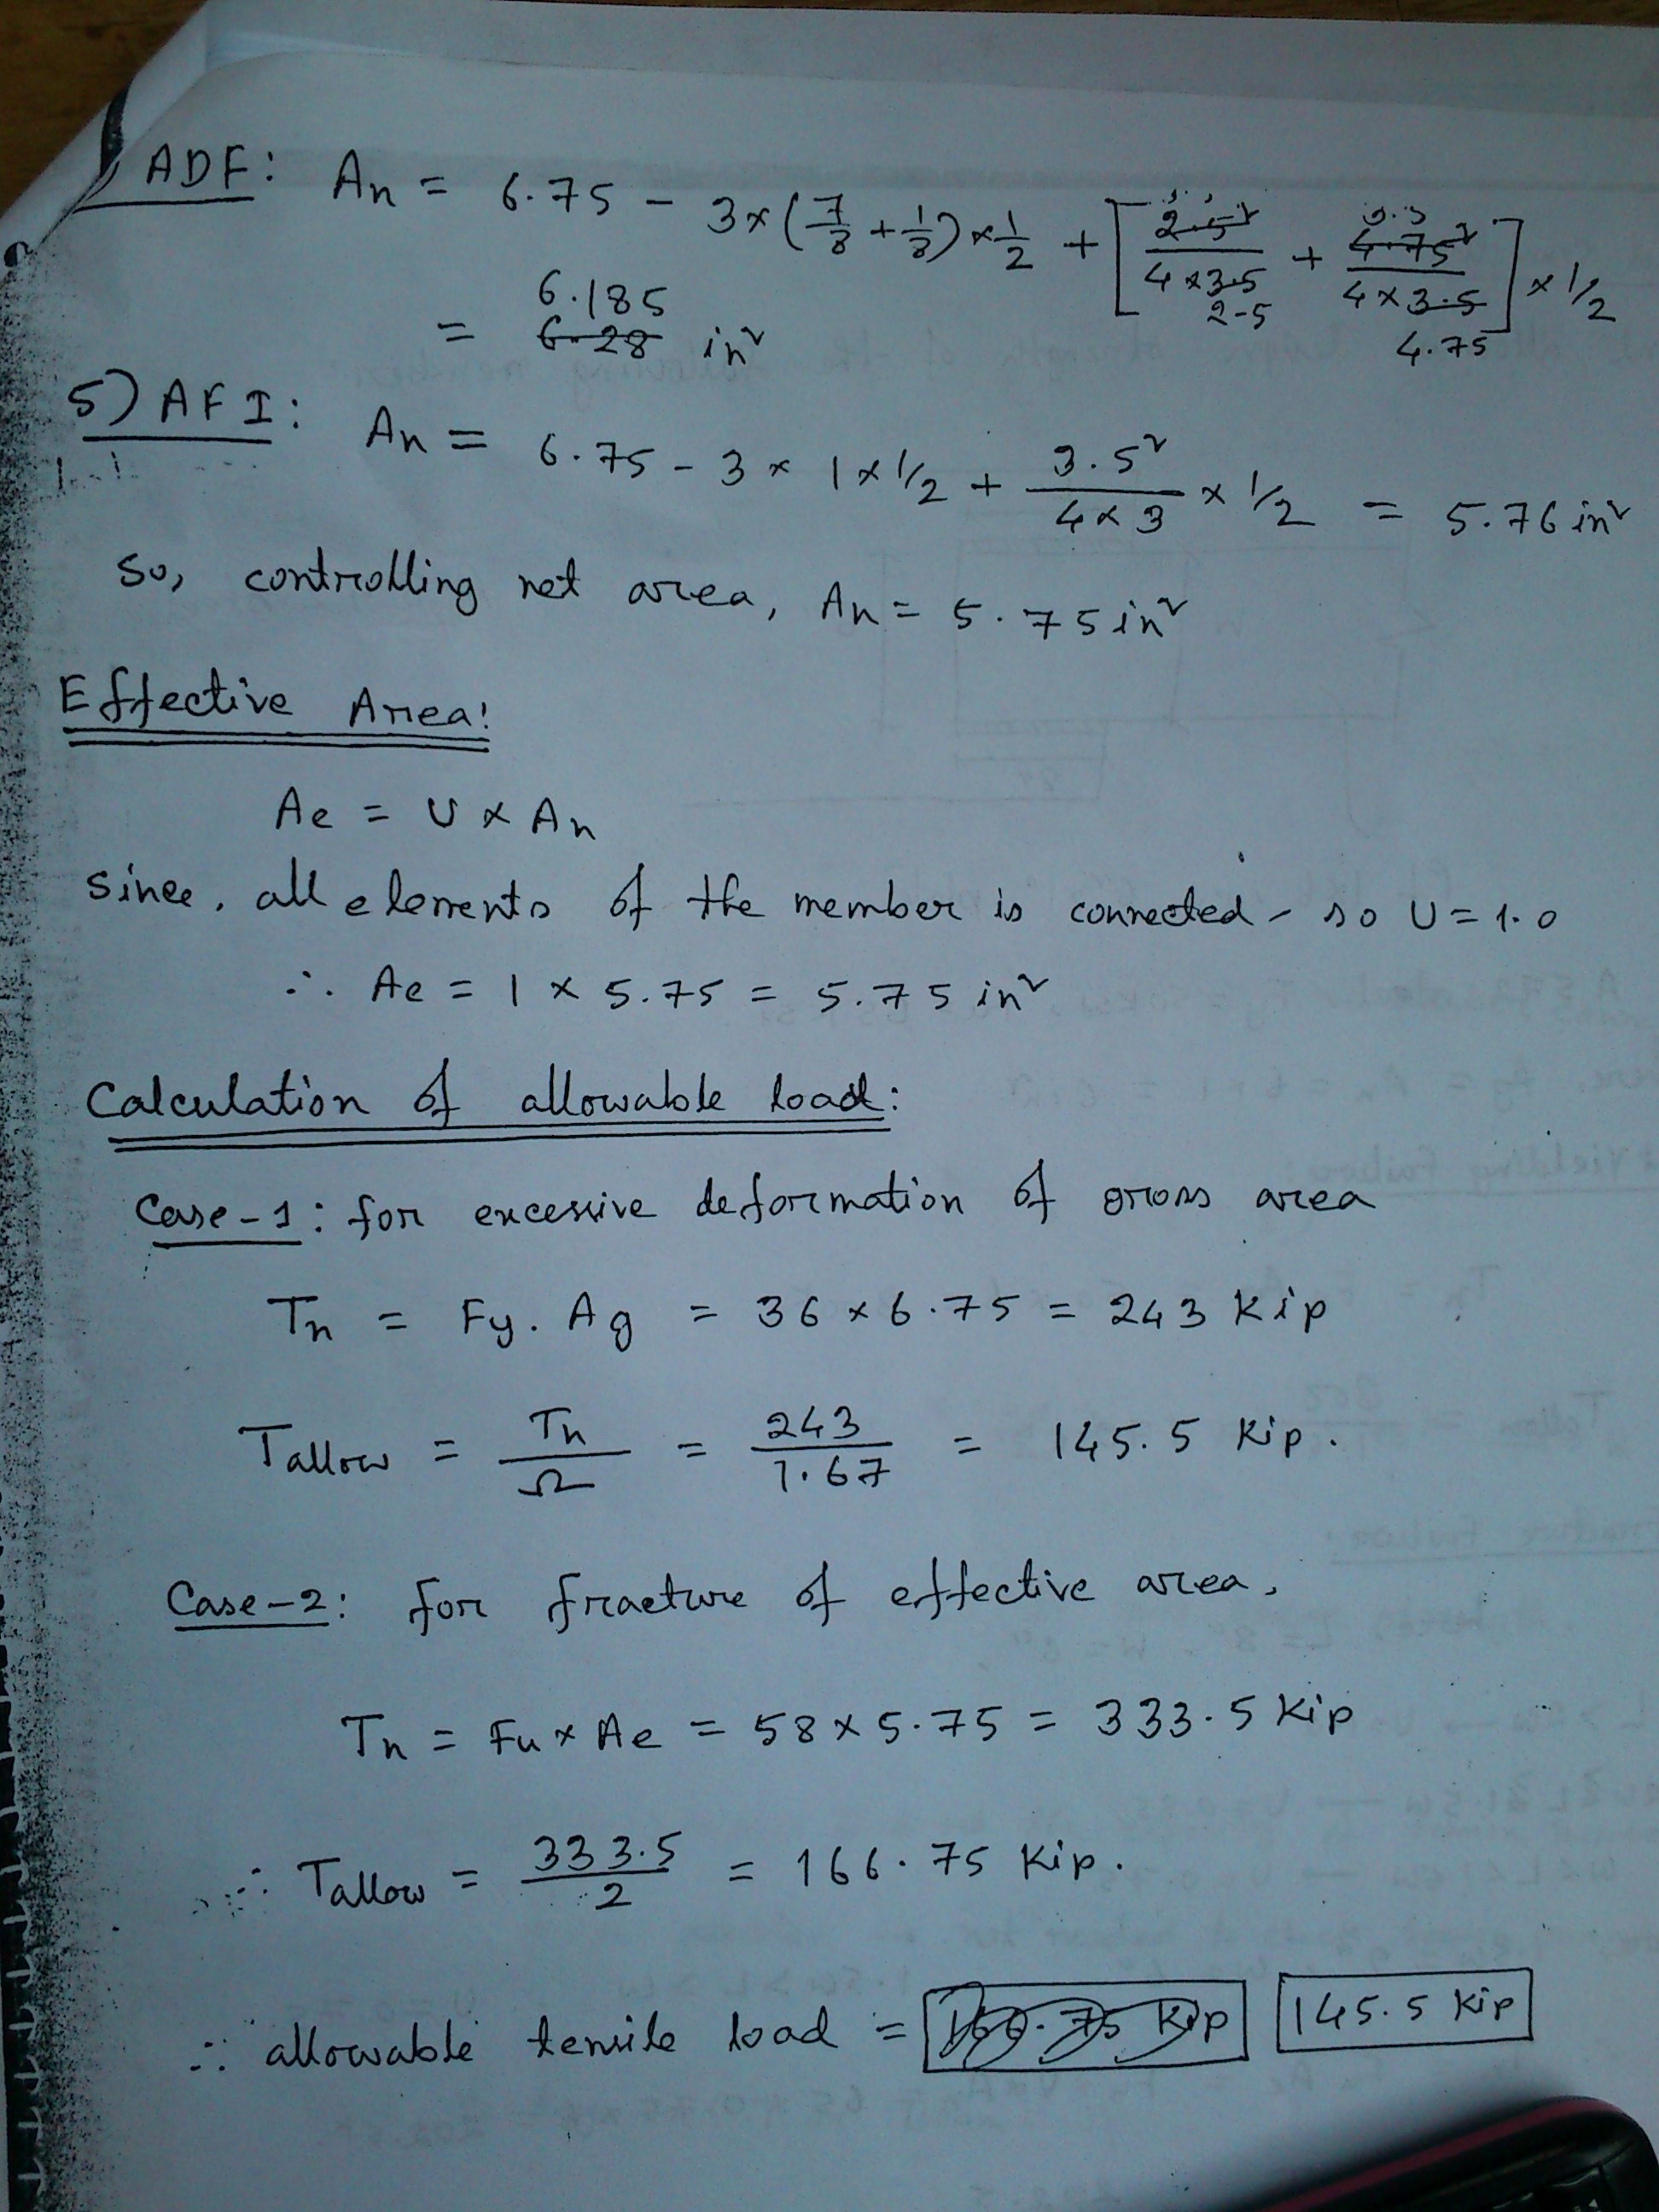 ADF: An = 6.75 - 3×(7/8 + 1/8)×1/2 + [3.5²/(4×2.5) + 3.5²/(4×4.75)] × 1/2
= 6.185 in²
5) AFI: An = 6.75 - 3 × 1 × 1/2 + 3.5²/(4×3) × 1/2 = 5.76 in²
So, controlling net area, An = 5.75 in²
Effective Area:
Ae = U × An
since, all elements of the member is connected - so U = 1.0
∴ Ae = 1 × 5.75 = 5.75 in²
Calculation of allowable load:
Case-1: for excessive deformation of gross area
Tn = Fy. Ag = 36 × 6.75 = 243 Kip
Tallow = Tn/Ω = 243/1.67 = 145.5 Kip.
Case-2: for fracture of effective area,
Tn = Fu × Ae = 58 × 5.75 = 333.5 Kip
∴ Tallow = 333.5/2 = 166.75 Kip.
∴ allowable tensile load = 145.5 Kip